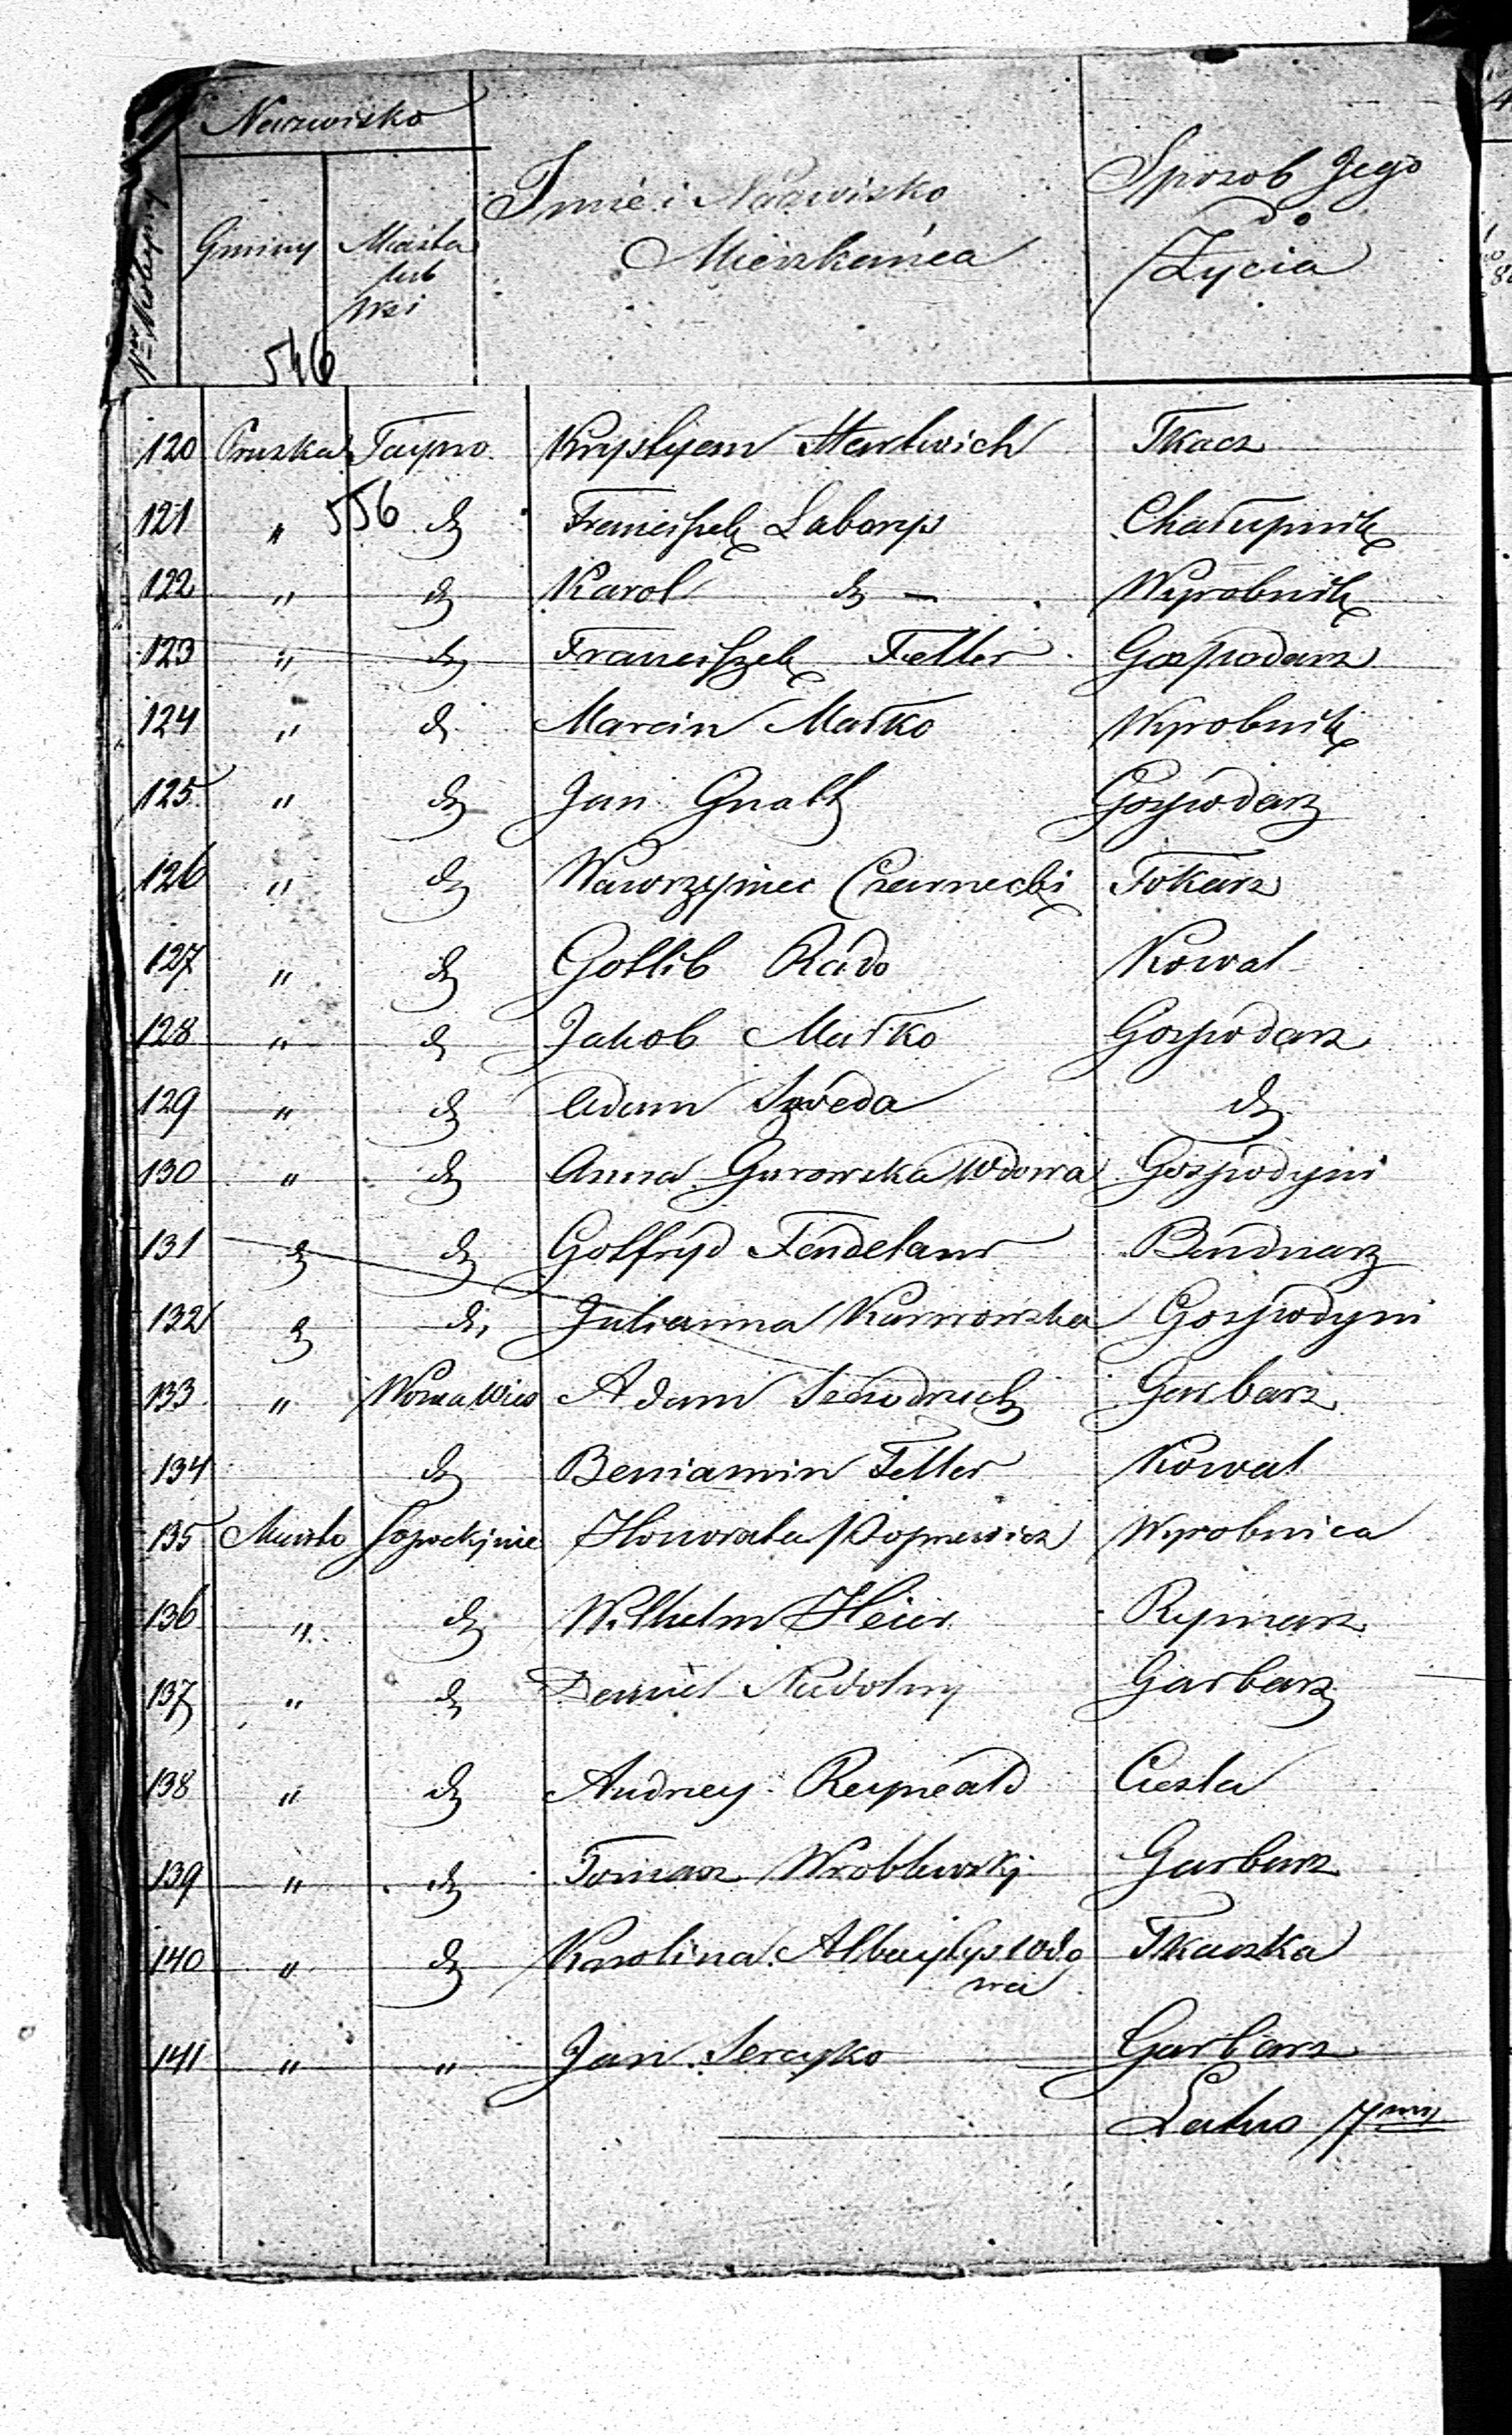 Nazwisko
Nro Kolejny
Gminy
Miasta
lub
Wsi
Imie i Nazwisko
Mieszkańca
Sposob Jego
do
Życia
546
120 Pruska Tayno Krystyan Hertwich Tkacz
121 " 556 do Franciszek Labomps Chałupnik
122 " do Karol do — Wyrobnik
123 " do Franciszek Feller Gospodarz
124 " do Marcin Małko Wyrobnik
125 " do Jan Gnath Gospodarz
126 " do Wawrzyniec Czarnecki Tokarz
127 " do Gotlib Rado Kowal
128 " do Jakob Małko Gospodarz
129 " do Adam Szweda do
130 " do Anna Gurowska Wdowa Gospodyni
131 do do Gotfryd Bednarz
132 do do Julianna Karwowska Gospodyni
133 " Nowa Wies Adam Garbarz
134 do Beniamin Feller Kowal
135 Miasto Sopockinie Honorata Wyrobnica
136 " do Wilhelm Heier Rymarz
137 " do Daniel Nadolny Garbarz
138 " do Andrzey Reyneald Ciesla
139 " do Tomasz Wroblewski Garbarz
140 " do Karolina Wdo
wa Tkaczka
141 " " Jan Sercyko Garbarz
Latus 7my